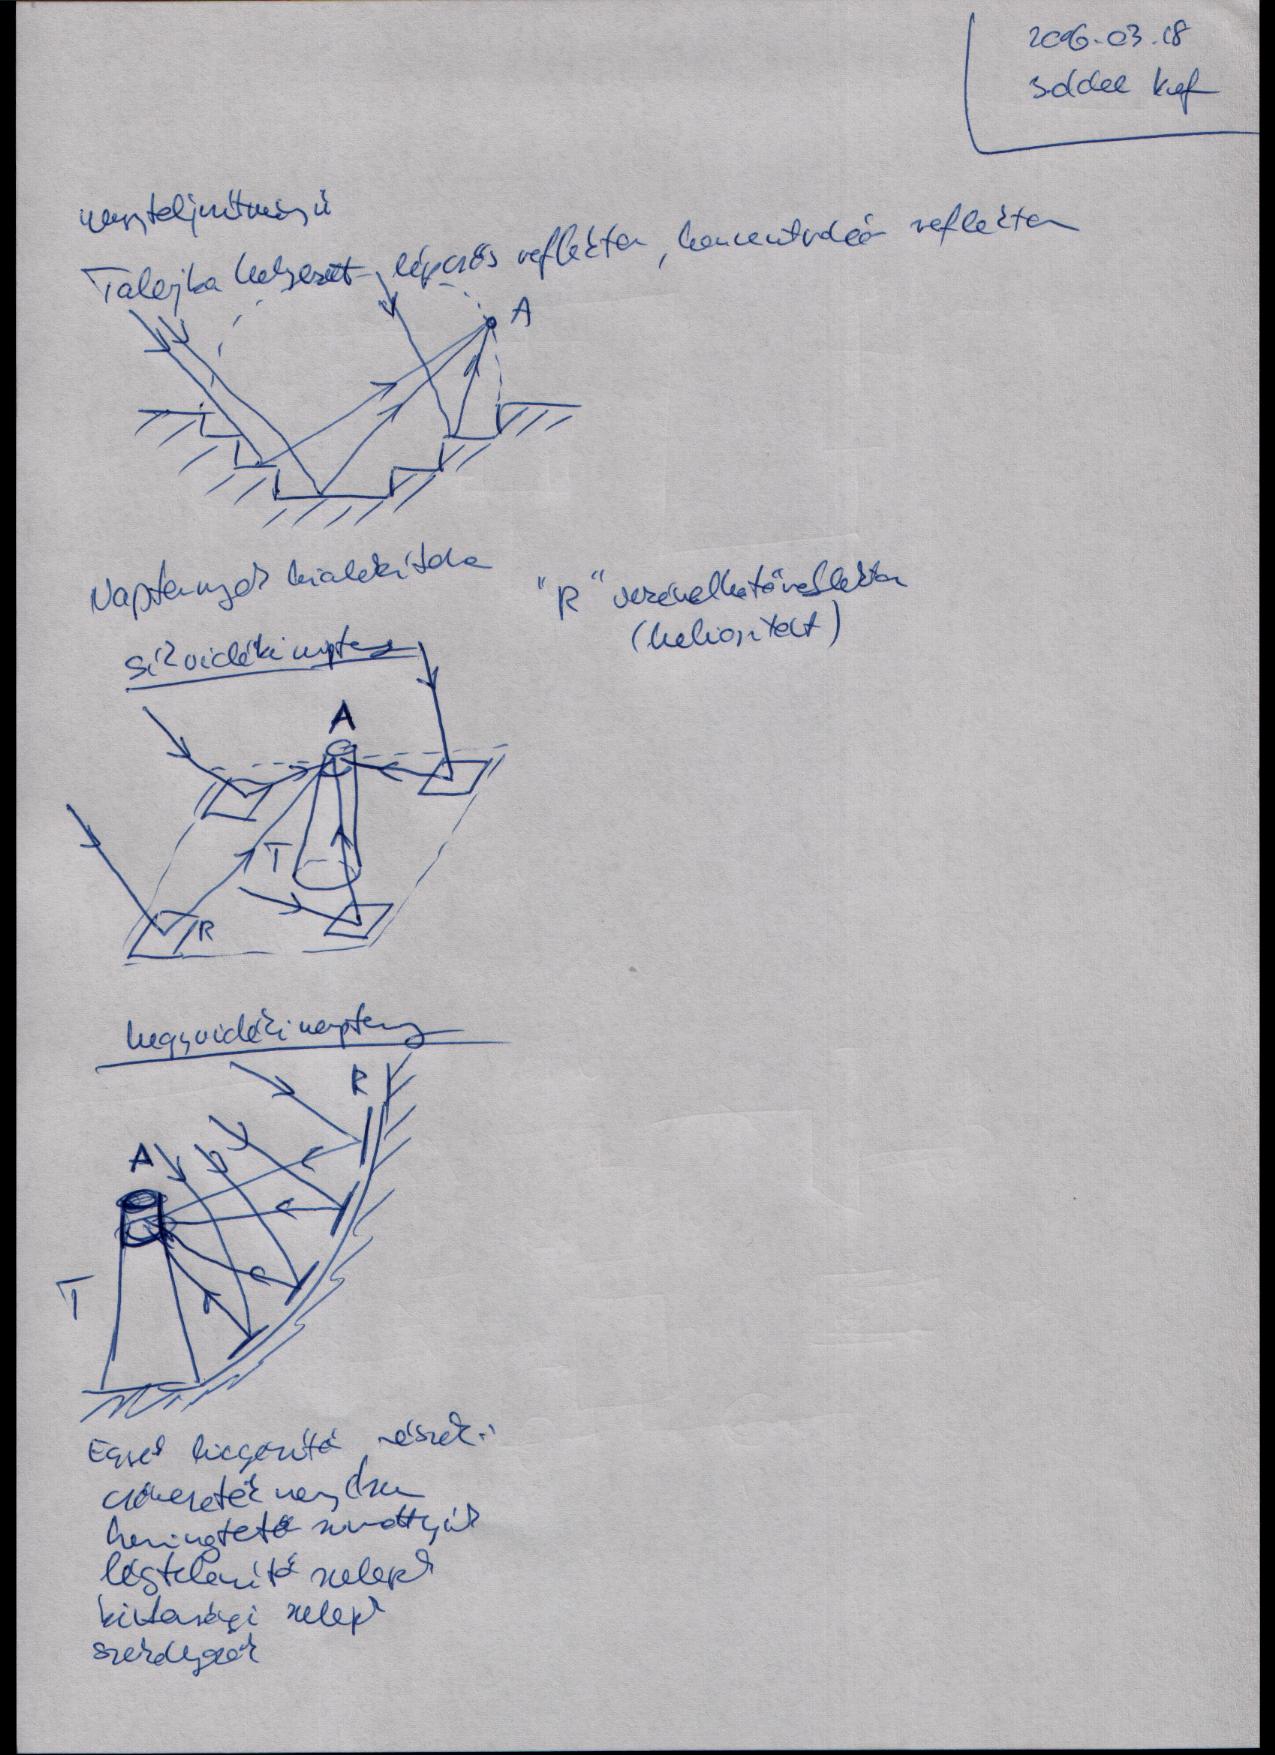 2006.03.18
nagyteljesítményű
Talajba helyezett lépcsős reflektor, koncentráció reflektor
A
Naptornyok kialakítása
"R" vezérelhető reflektor
(heliosztát)
síkvidéki naptorony
A
T
R
hegyvidéki naptorony
R
A
T
Egyéb kiegészítő részek:
csővezeték rendszer
keringtető szivattyúk
légtelenítő szelepek
biztonsági szelepek
szerelvények